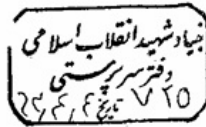 بنیاد شهید انقلاب اسلامی
دفتر سرپرستی
۷۱۵ تاریخ ۶۳/۴/۴